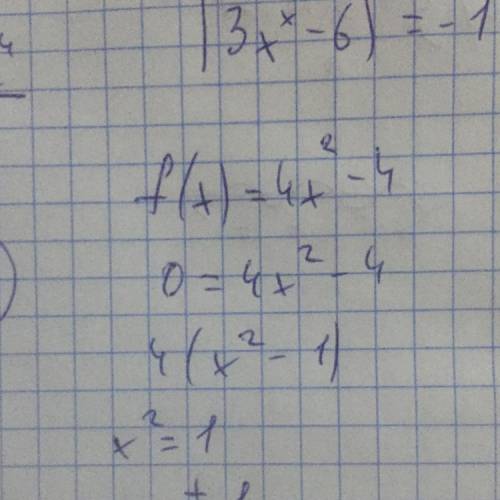 |3x^x - 6| = -1
f(x) = 4x² - 4
0 = 4x² - 4
4(x² - 1)
x² = 1